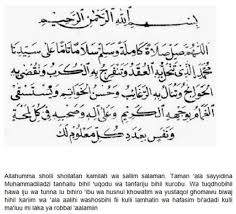 بسم الله الرحمن الرحيم
اللهم صل صلاة كاملة وسلم سلاما تاما على سيدنا
محمد الذي تنحل به العقد وتنفرج به الكرب وتقضى به
الحوائج وتنال به الرغائب وحسن الخواتم ويستسقى
الغمام بوجهه الكريم وعلى آله وصحبه في كل لمحة
ونفس بعدد كل معلوم لك
Allahumma sholli sholatan kamilatah wa salim salaman. Taman 'ala sayyidina
Muhammadiladzi tanhallu bihil 'uqodu wa tanfariju bihil kurobu. Wa tuqdhobihil
hawa iju wa tunna lu bihiro 'ibu wa husnul khowatim wa yustaqol ghomawu biwaj
hihil kariim wa 'ala aalihi washosbihi fii kulli lamhatin wa hafasim bi'adadi kulli
ma'luu mi laka ya robbal 'aalamiin